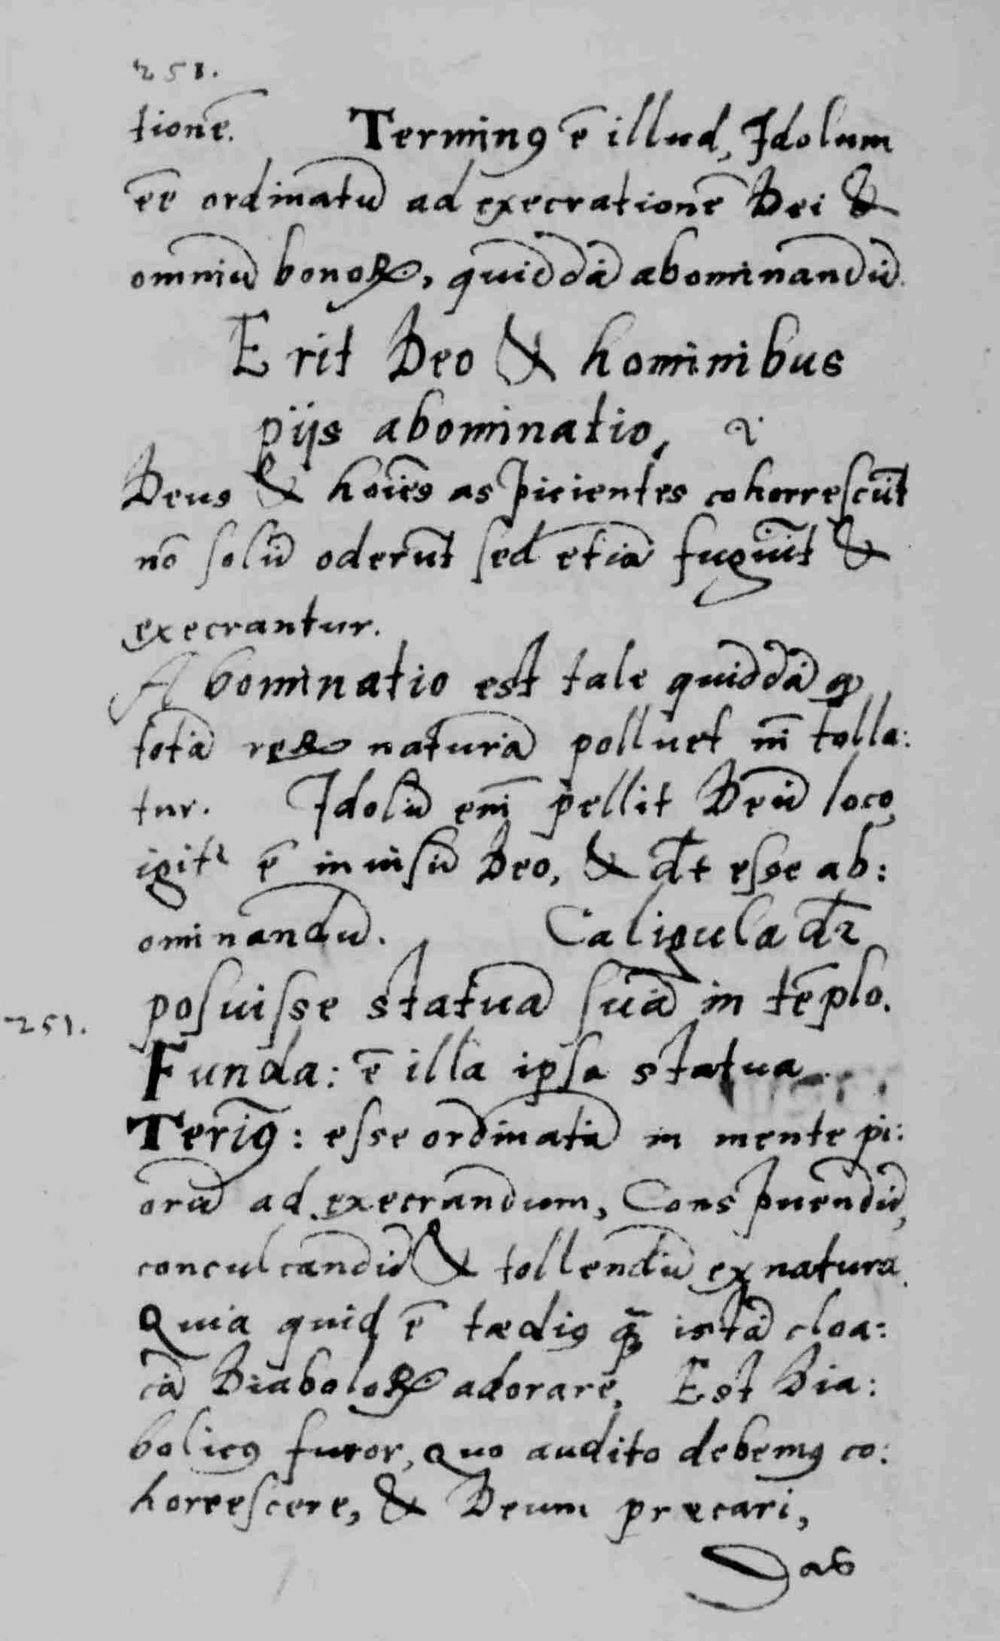 251.
tionē. Terminꝰ ē illud, Idolum
ēē ordinatū ad execrationē Dei &
omniū bonoꝝ, quiddā abominandū.
Erit Deo & hominibus
pijs abominatio,
Deus & hoīes aspicientes cohorrescūt
nō solū oderūt sed etiā fugiūt &
execrantur.
Abominatio est tale quiddā qđ
totā reꝝ naturā polluet nī tolla:
tur. Idolū enī pellit Deū loco
igitᷣ ē invisū Deo, & dr̄t esse ab:
ominandū. Caligula dr̄
posuisse statuā suā in tēplo.
251.
Funda: ē illa ipsa statua.
Terīꝰ: esse ordinatā in mente pi:
orū ad execrandum, Conspuendū,
conculcandū & tollendū ex natura.
Quia quid ē tædiꝰ quā istā cloa:
cā Diaboloꝝ adorare. Est Dia:
bolicꝰ furor, quo audito debemꝰ co:
horrescere, & Deum præcari,
Das